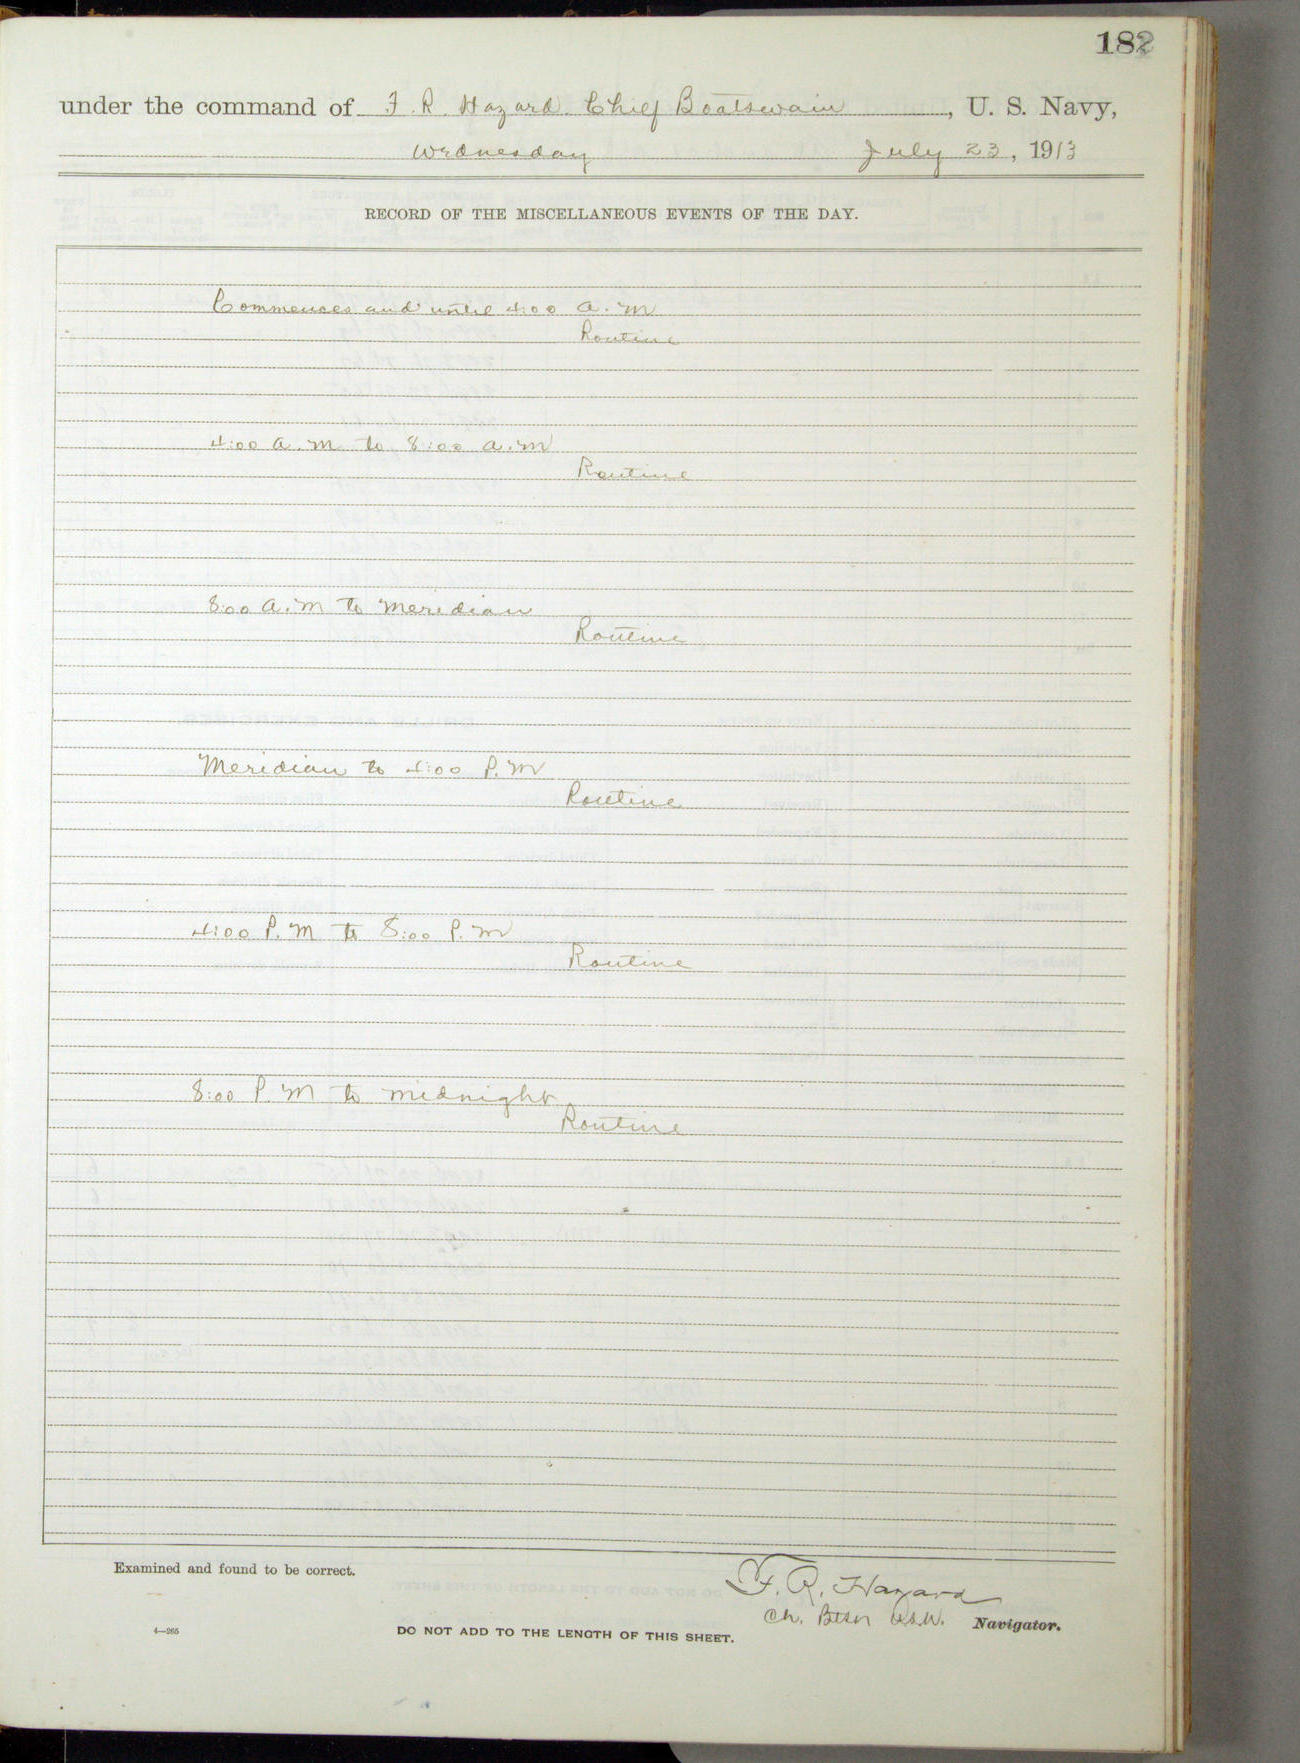 182
under the command of F. R. Hazard. Chief Boatswain, U. S. Navy,
Wednesday July 23, 1913
RECORD OF THE MISCELLANEOUS EVENTS OF THE DAY.
Commences and until 4:00 a.m
Routine
4:00 a.m to 8:00 a.m
Routine
8:00 a.m to Meridian
Routine
Meridian to 4:00 P.M
Routine
4:00 P.M to 8:00 P.M
Routine
8:00 P.M to midnight
Routine
Examined and found to be correct.
F. R. Hazard
Ch. Btsn U.S.N. Navigator.
4—265
DO NOT ADD TO THE LENGTH OF THIS SHEET.